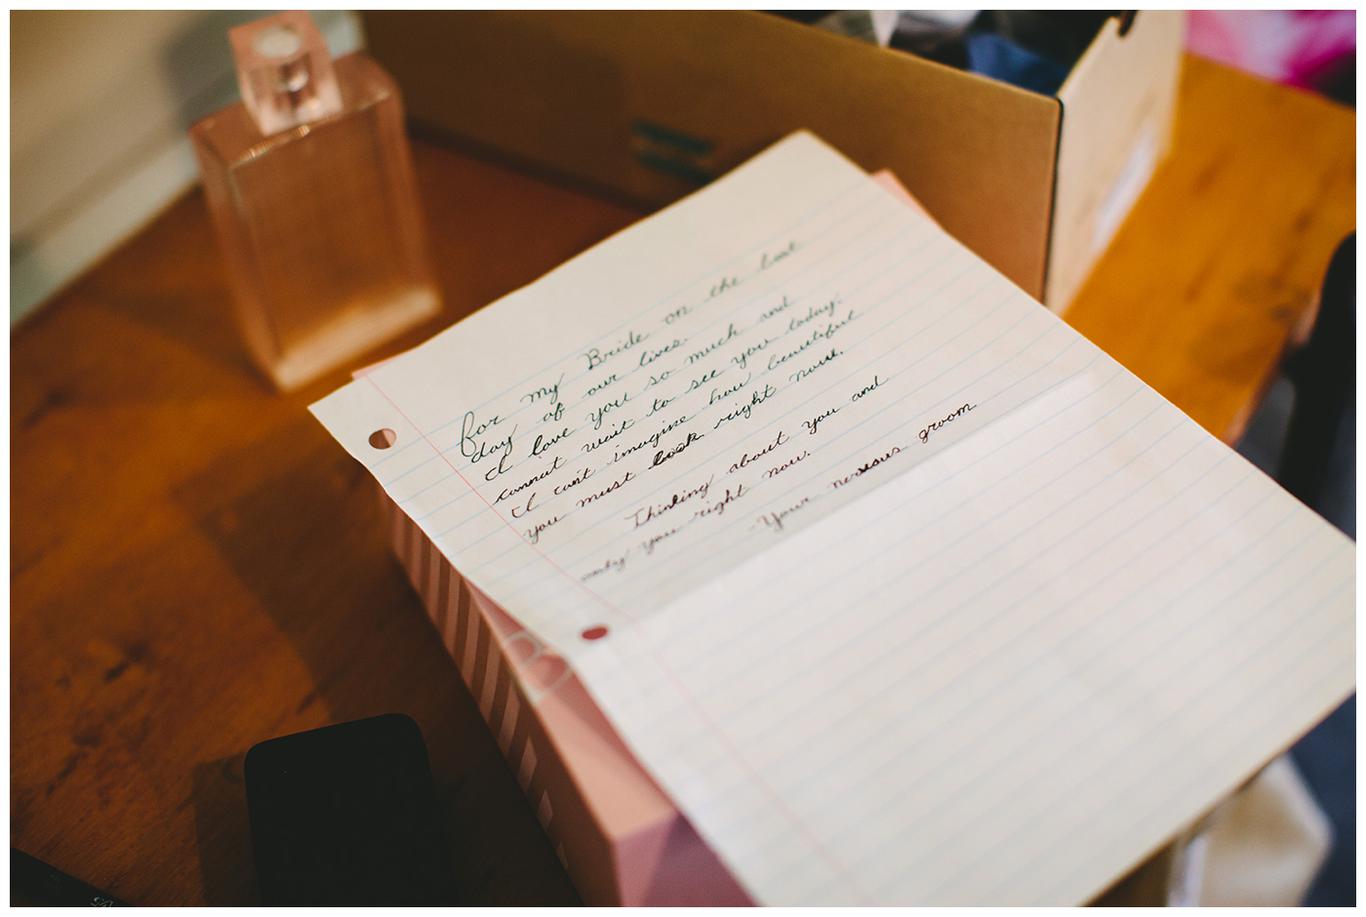 for my Bride on the best
day of our lives.
I love you so much and
cannot wait to see you today.
I can't imagine how beautiful
you must look right now.
Thinking about you and
only you right now.
-Your nervous groom
B